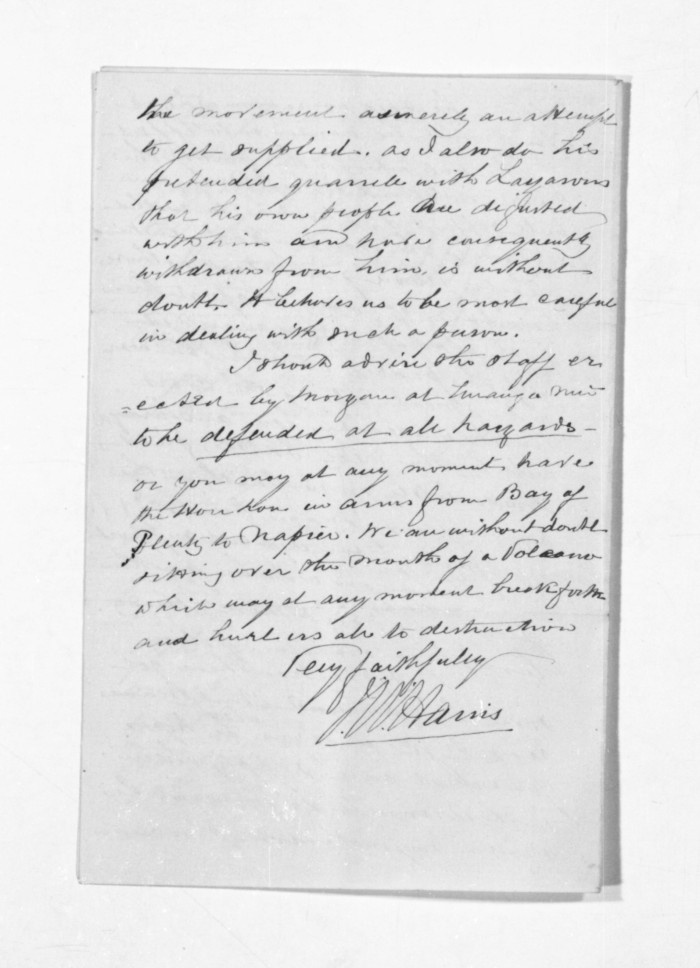 the movement as merely an attempt
to get supplied. as I also do his
pretended quarrell with Lazarous
that his own people are disgusted
with him and have consequently
withdrawn from him, is without
doubt. It behoves us to be most careful
in dealing with such a person.
I should advise the staff er
=ected by Morgan at
to be defended at all hazards -
or you may at any moment have
the Hou Hou in arms from Bay of
Plenty to Napier. We are without doubt
sitting over the mouth of a Volcano
which may at any moment break forth
and hurl us all to destruction
Very faithfully
J.W. Harris